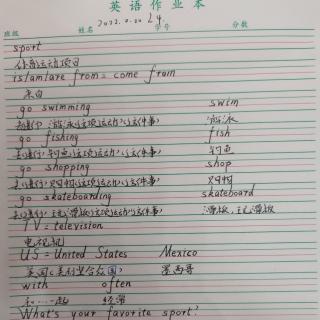 英语作业本
班级 姓名 学号 分数
sport
体育运动项目
is/am/are from = come from
来自
go swimming swim
去进行游泳这项运动/这件事 游泳
go fishing fish
去进行钓鱼这项运动/这件事 钓鱼
go shopping shop
去进行购物这项运动/这件事 购物
go skateboarding skateboard
去进行玩滑板这项运动/这件事 滑板,玩滑板
TV = television
电视机
US = United States Mexico
美国(美利坚合众国) 墨西哥
with often
和…一起 经常
What's your favorite sport?